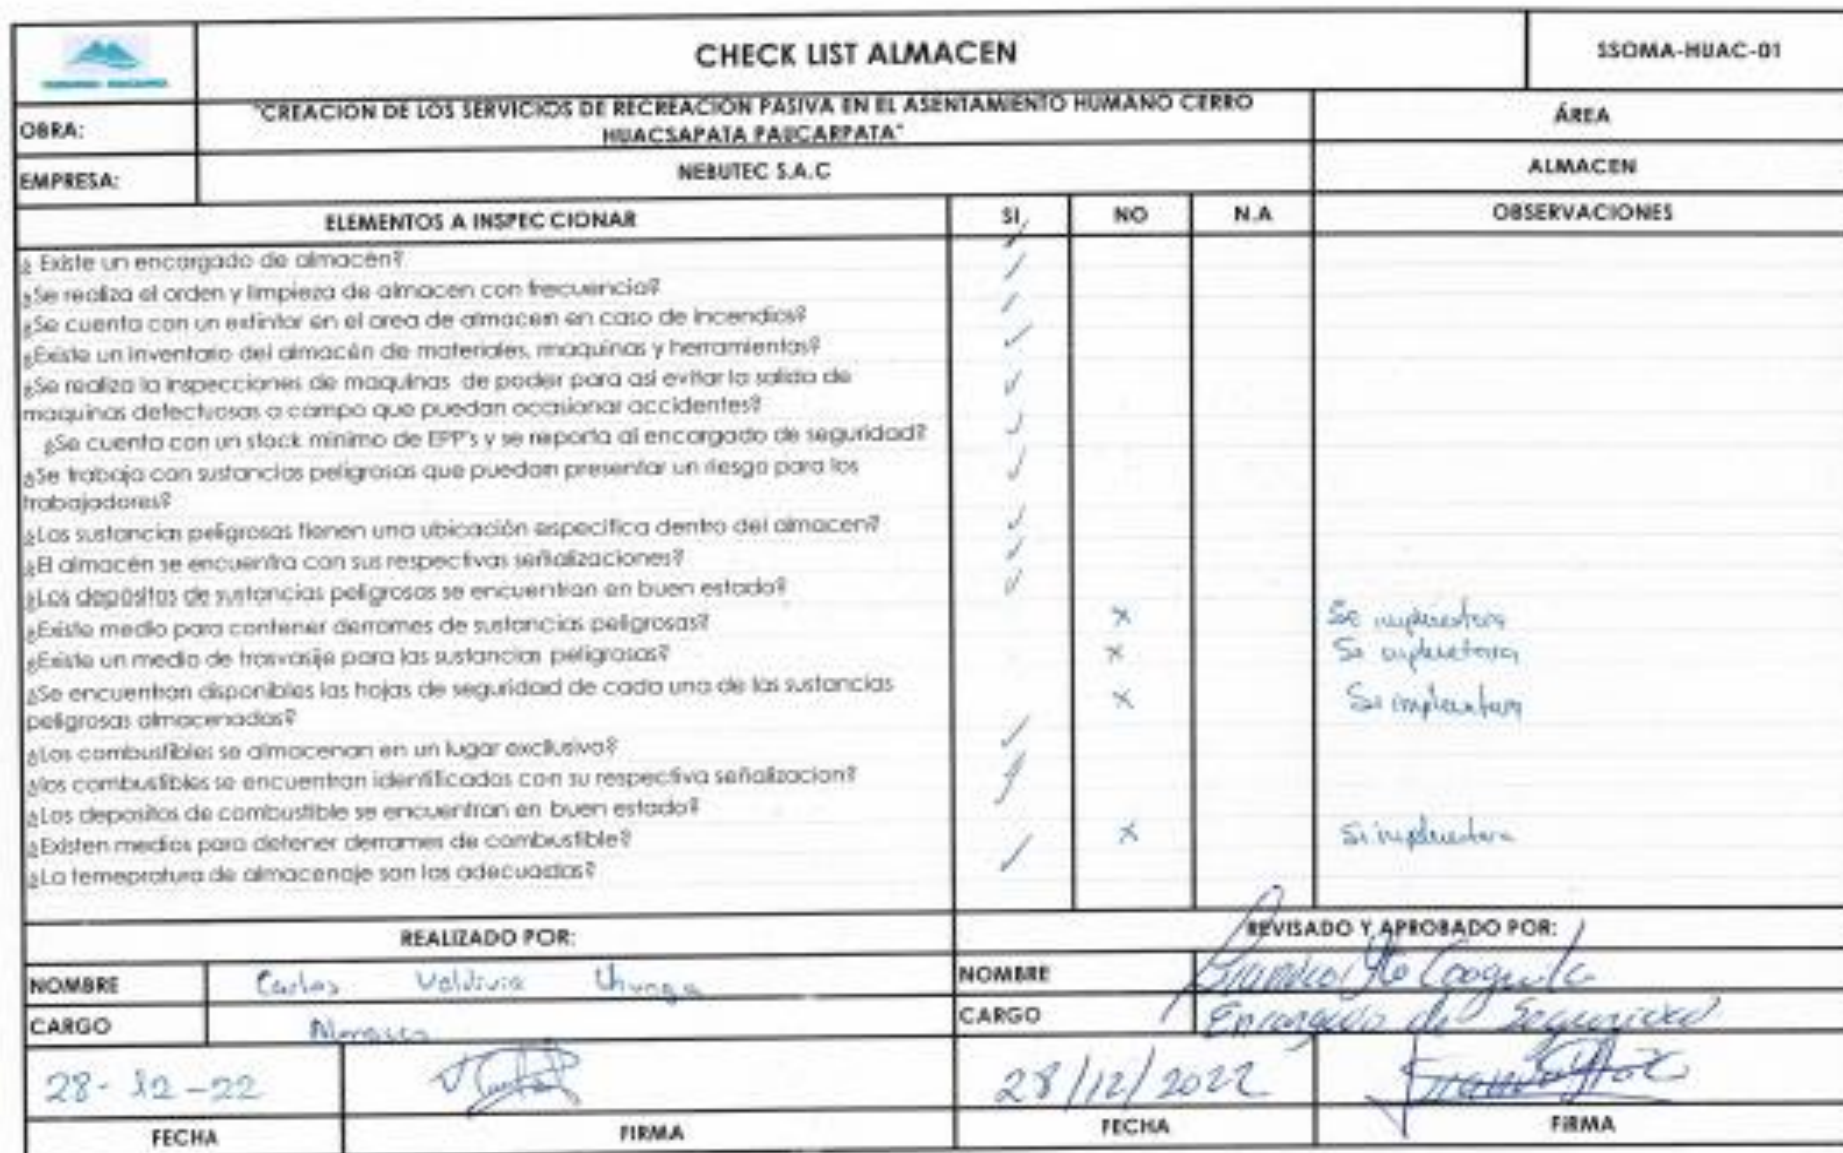 CHECK LIST ALMACEN
SSOMA-HUAC-01
OBRA:
"CREACION DE LOS SERVICIOS DE RECREACIÓN PASIVA EN EL ASENTAMIENTO HUMANO CERRO
HUACSAPATA PAUCARPATA"
ÁREA
EMPRESA:
NEBUTEC S.A.C
ALMACEN
ELEMENTOS A INSPECCIONAR
SI
NO
N.A
OBSERVACIONES
¿ Existe un encargado de almacén?
¿Se realiza el orden y limpieza de almacen con frecuencia?
¿Se cuenta con un extintor en el area de almacem en caso de incendios?
¿Existe un inventario del almacén de materiales, maquinas y herramientas?
¿Se realiza la inspecciones de maquinas de poder para asi evitar la salida de
maquinas defectuosas a campo que puedan ocasionar accidentes?
¿Se cuenta con un stock minimo de EPP's y se reporta al encargado de seguridad?
¿Se trabaja con sustancias peligrosas que puedam presentar un riesgo para los
trabajadores?
¿Las sustancias peligrosas tienen una ubicación especifica dentro del almacen?
¿El almacén se encuentra con sus respectivas señalizaciones?
¿Los depósitos de sustancias peligrosas se encuentran en buen estado?
¿Existe medio para contener derrames de sustancias peligrosas?
x
Se
¿Existe un medio de trasvasije para las sustancias peligrosas?
x
Se
¿Se encuentran disponibles las hojas de seguridad de cada una de las sustancias
peligrosas almacenadas?
x
Se
¿Los combustibles se almacenan en un lugar exclusivo?
¿los combustibles se encuentran identificados con su respectiva señalizacion?
¿Los depositos de combustible se encuentran en buen estado?
¿Existen medios para detener derrames de combustible?
x
¿La temepratura de almacenaje son las adecuadas?
REALIZADO POR:
REVISADO Y APROBADO POR:
NOMBRE
Carlos Valdivia
NOMBRE
CARGO
CARGO
Encargado de Seguridad
28-12-22
28/12/2022
FECHA
FIRMA
FECHA
FIRMA